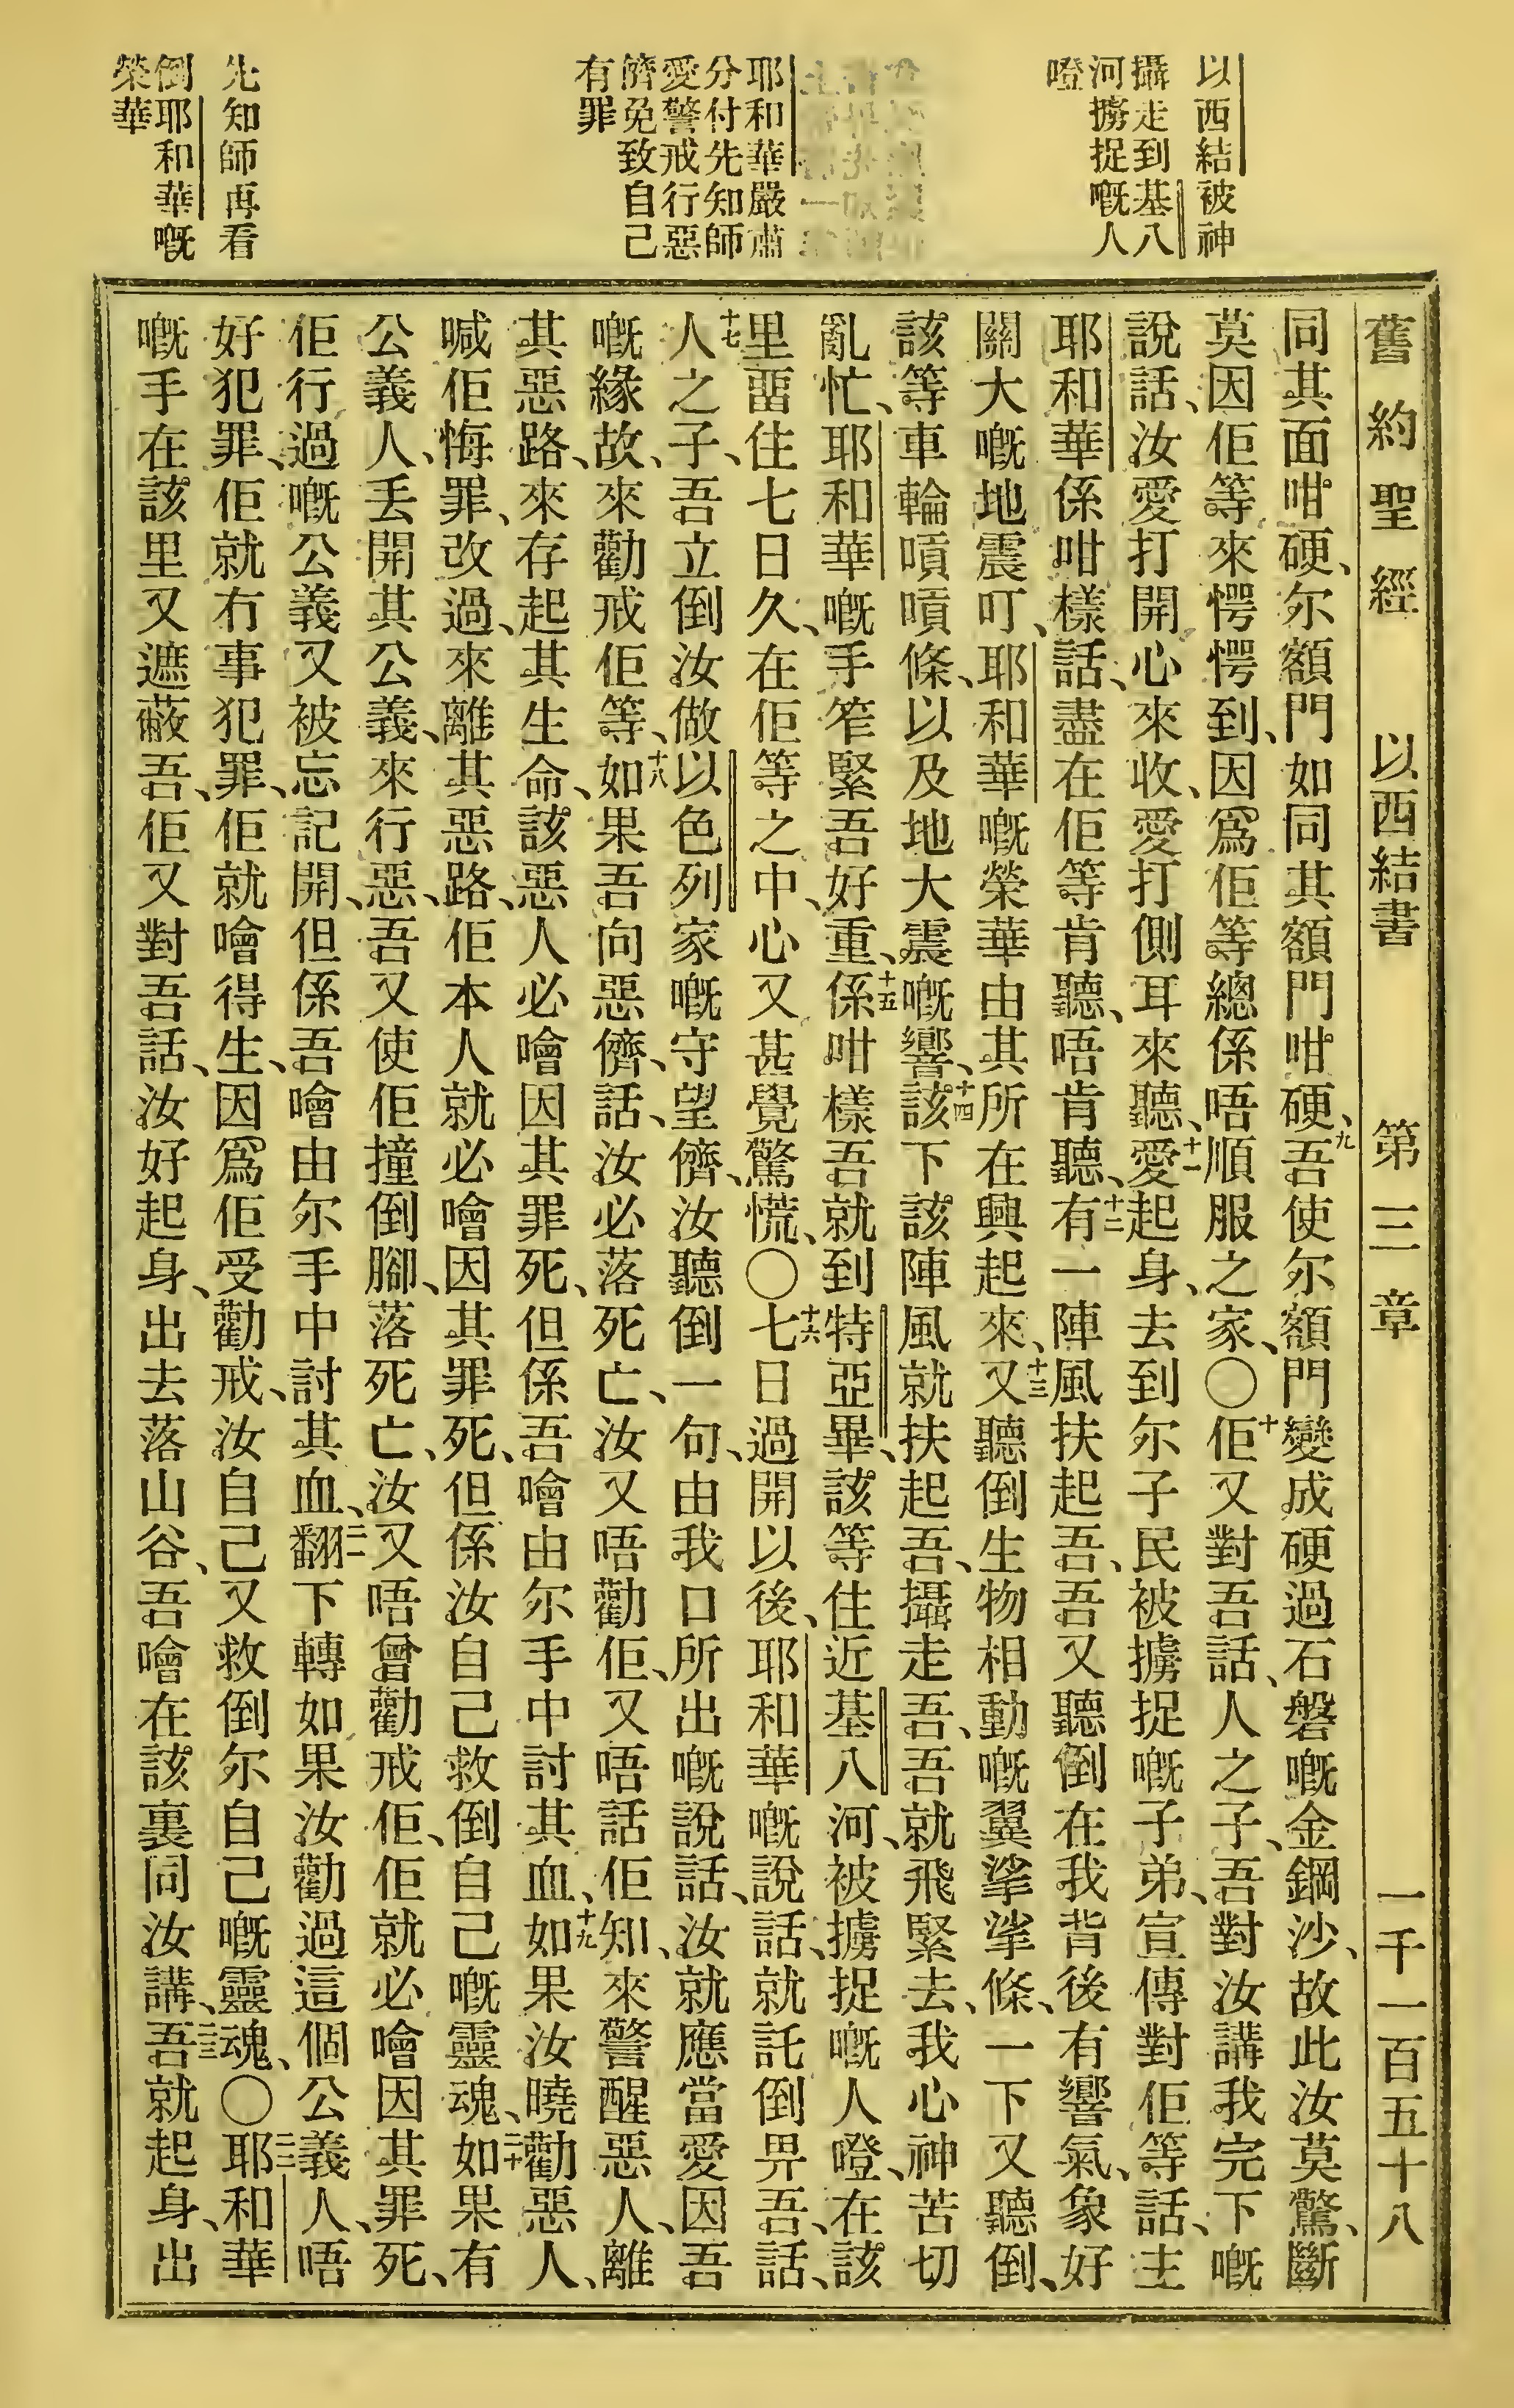 以西結被神
攝走到基八
河擄捉嘅人
噔
耶和華嚴肅
分付先知師
愛警戒行惡
儕免致自己
有罪
先知師再看
倒耶和華嘅
榮華
舊約聖經 以西結書 第三章 一千一百五十八
同其面咁硬、尔額門如同其額門咁硬、九吾使尔額門變成硬過石磐嘅金鋼沙、故此汝莫驚、斷
莫因佢等來愕愕到、因爲佢等總係唔順服之家、〇十佢又對吾話、人之子、吾對汝講我完下嘅
說話、汝愛打開心來收、愛打側耳來聽、十一愛起身、去到尔子民被擄捉嘅子弟、宣傳對佢等話、主
耶和華係咁樣話、盡在佢等肯聽、唔肯聽、十二有一陣風扶起吾、吾又聽倒在我背後有響氣、象好
關大嘅地震叮、耶和華嘅榮華由其所在興起來、十三又聽倒生物相動嘅翼挲挲條、一下又聽倒、
該等車輪嗊嗊條、以及地大震嘅響、十四該下該陣風就扶起吾、攝走吾、吾就飛緊去、我心神苦切
亂忙、耶和華嘅手笮緊吾好重、十五係咁樣吾就到特亞畢、該等住近基八河、被擄捉嘅人噔、在該
里畱住七日久、在佢等之中、心又甚覺驚慌、〇十六七日過開以後、耶和華嘅說話、就託倒畀吾、話、
十七人之子、吾立倒汝做以色列家嘅守望儕、汝聽倒一句、由我口所出嘅說話、汝就應當愛因吾
嘅緣故、來勸戒佢等、十八如果吾向惡儕、話、汝必落死亡、汝又唔勸佢、又唔話佢知、來警醒惡人、離
其惡路、來存起其生命、該惡人必噲因其罪死、但係吾噲由尔手中討其血、十九如果汝曉勸惡人、
喊佢悔罪、改過、來離其惡路、佢本人就必噲因其罪死、但係汝自己救倒自己嘅靈魂、二十如果有
公義人、丢開其公義、來行惡、吾又使佢撞倒腳、落死亡、汝又唔曾勸戒佢、佢就必噲因其罪死、
佢行過嘅公義又被忘記開、但係吾噲由尔手中討其血、二一翻下轉如果汝勸過這個公義人、唔
好犯罪、佢就冇事犯罪、佢就噲得生、因爲佢受勸戒、汝自己又救倒尔自己嘅靈魂、〇二二耶和華
嘅手在該里又遮蔽吾、佢又對吾話、汝好起身、出去落山谷、吾噲在該裏同汝講、二三吾就起身、出